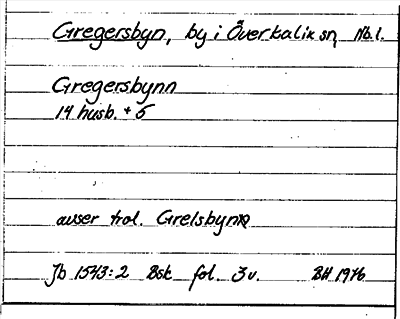 Gregersbyn, by i Överkalix sn, Nb. l.
Gregersbynn
14 husb. + 5
avser trol. Grelsbyn
Jb 1543:2 Bsk fol. 3v. BH 1976